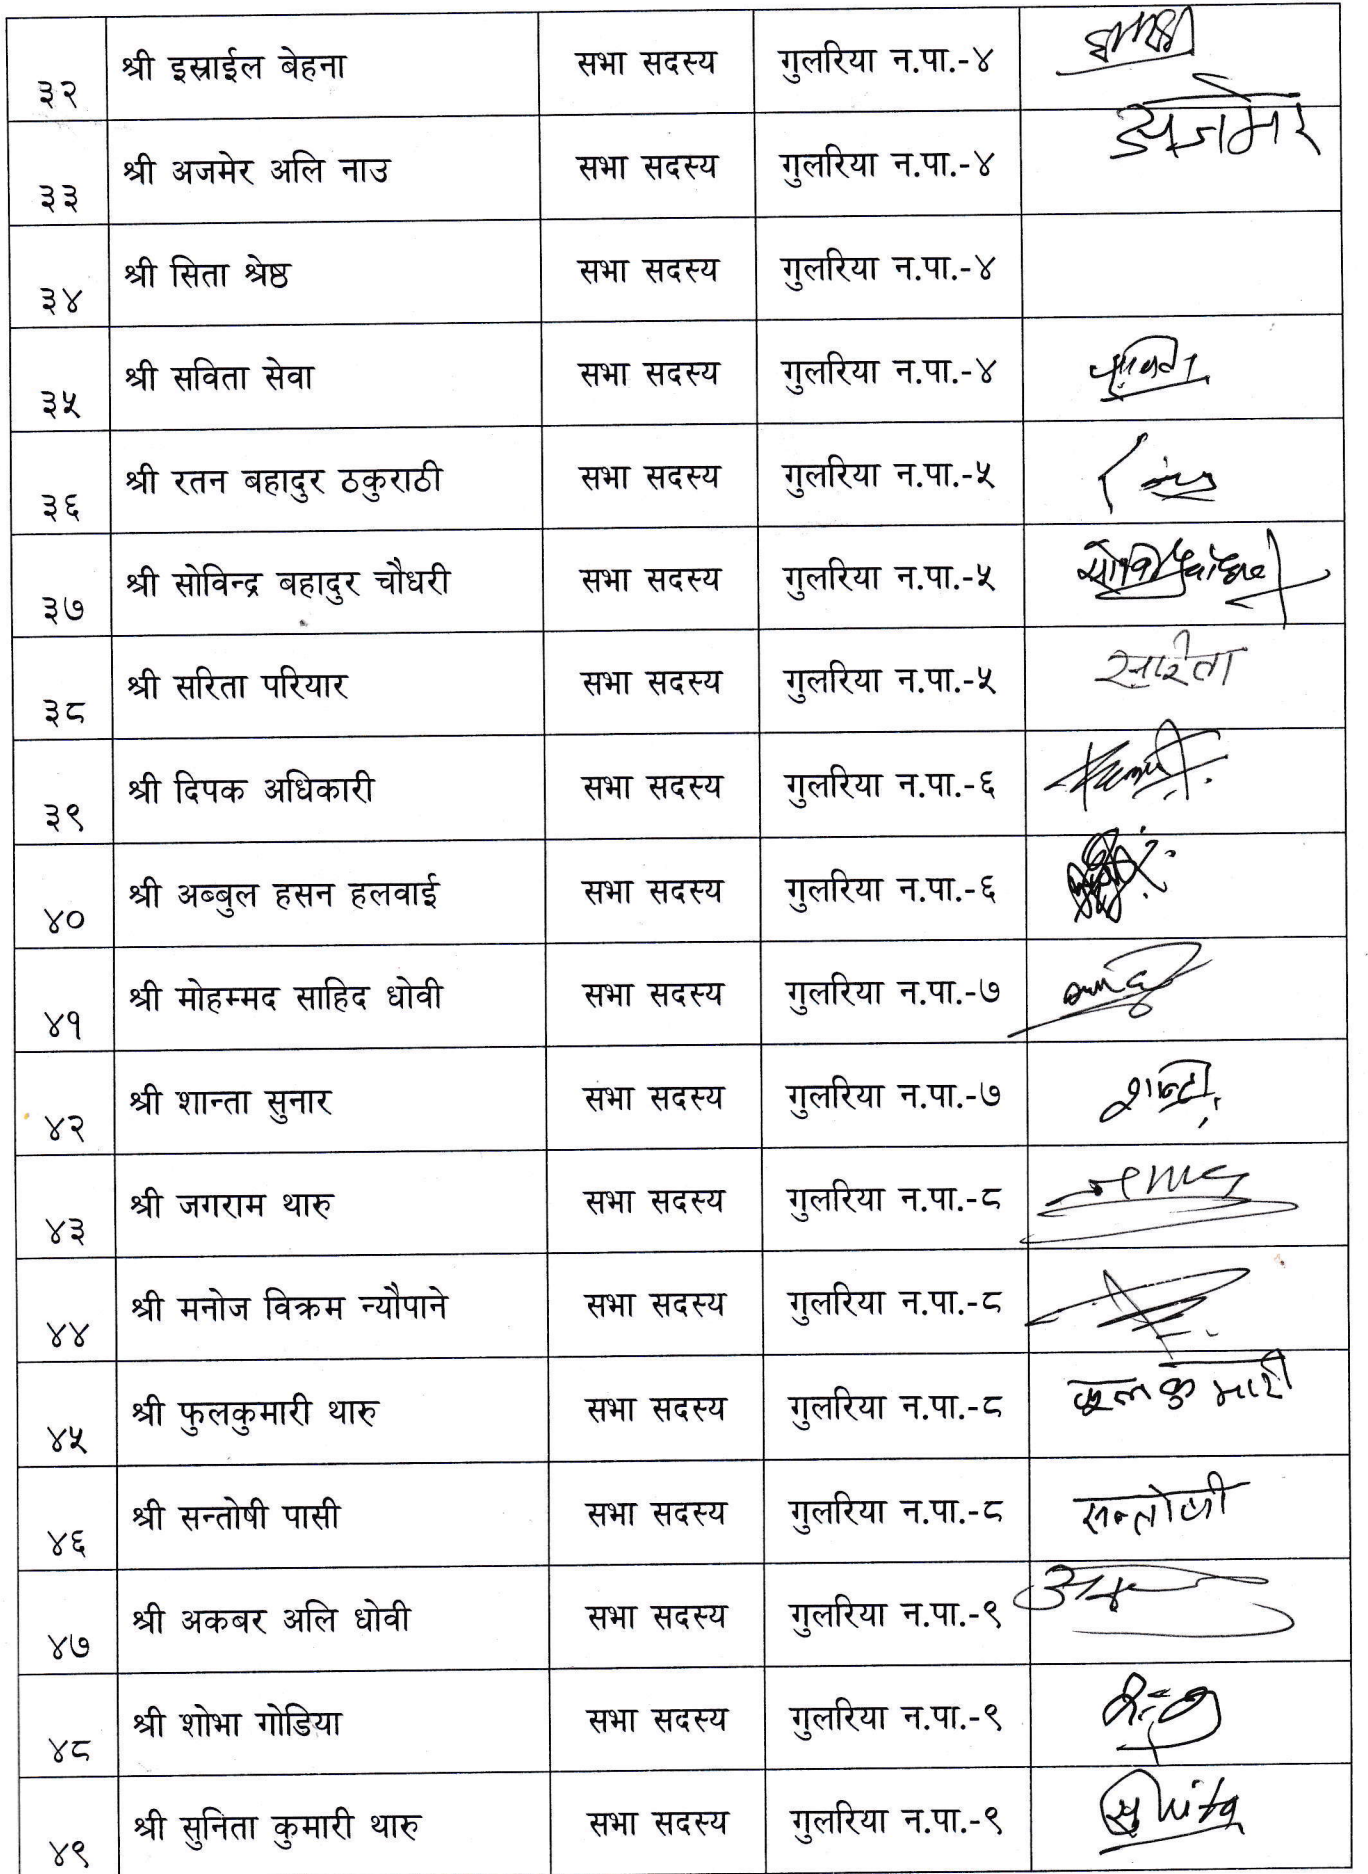 ३२ श्री इस्राईल बेहना सभा सदस्य गुलरिया न.पा.-४
३३ श्री अजमेर अलि नाउ सभा सदस्य गुलरिया न.पा.-४ अजमेर
३४ श्री सिता श्रेष्ठ सभा सदस्य गुलरिया न.पा.-४
३५ श्री सविता सेवा सभा सदस्य गुलरिया न.पा.-४
३६ श्री रतन बहादुर ठकुराठी सभा सदस्य गुलरिया न.पा.-५
३७ श्री सोविन्द्र बहादुर चौधरी सभा सदस्य गुलरिया न.पा.-५
३८ श्री सरिता परियार सभा सदस्य गुलरिया न.पा.-५ सरिता
३९ श्री दिपक अधिकारी सभा सदस्य गुलरिया न.पा.-६
४० श्री अब्बुल हसन हलवाई सभा सदस्य गुलरिया न.पा.-६
४१ श्री मोहम्मद साहिद धोवी सभा सदस्य गुलरिया न.पा.-७
४२ श्री शान्ता सुनार सभा सदस्य गुलरिया न.पा.-७ शान्ता
४३ श्री जगराम थारु सभा सदस्य गुलरिया न.पा.-८
४४ श्री मनोज विक्रम न्यौपाने सभा सदस्य गुलरिया न.पा.-८
४५ श्री फुलकुमारी थारु सभा सदस्य गुलरिया न.पा.-८ फुलकुमारी
४६ श्री सन्तोषी पासी सभा सदस्य गुलरिया न.पा.-८ सन्तोषी
४७ श्री अकबर अलि धोवी सभा सदस्य गुलरिया न.पा.-९
४८ श्री शोभा गोडिया सभा सदस्य गुलरिया न.पा.-९
४९ श्री सुनिता कुमारी थारु सभा सदस्य गुलरिया न.पा.-९